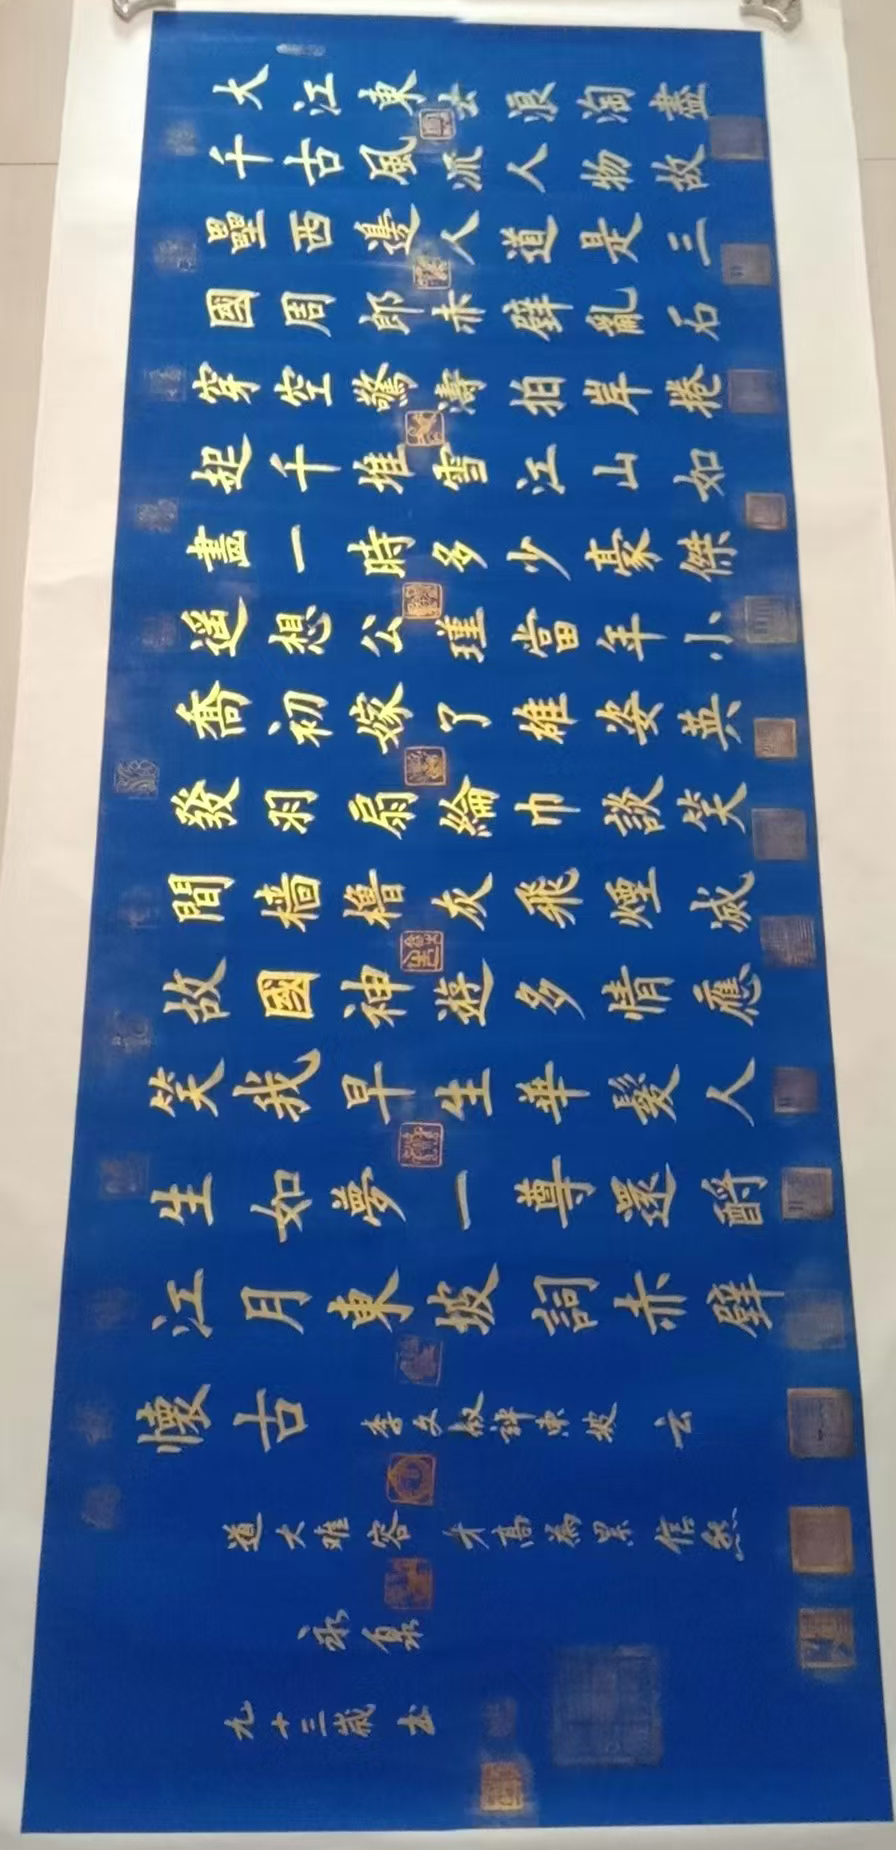 大江東去浪淘盡
千古風流人物故
壘西邊人道是三
國周郎赤壁亂石
穿空驚濤拍岸捲
起千堆雪江山如
畫一時多少豪傑
遥想公瑾當年小
喬初嫁了雄姿英
發羽扇綸巾談笑
間檣櫓灰飛煙滅
故國神遊多情應
笑我早生華髮人
生如夢一尊還酹
江月東坡詞赤壁
懷古 李文叔評東坡云
道大難容才高為累信然
永泉
九十三歲書